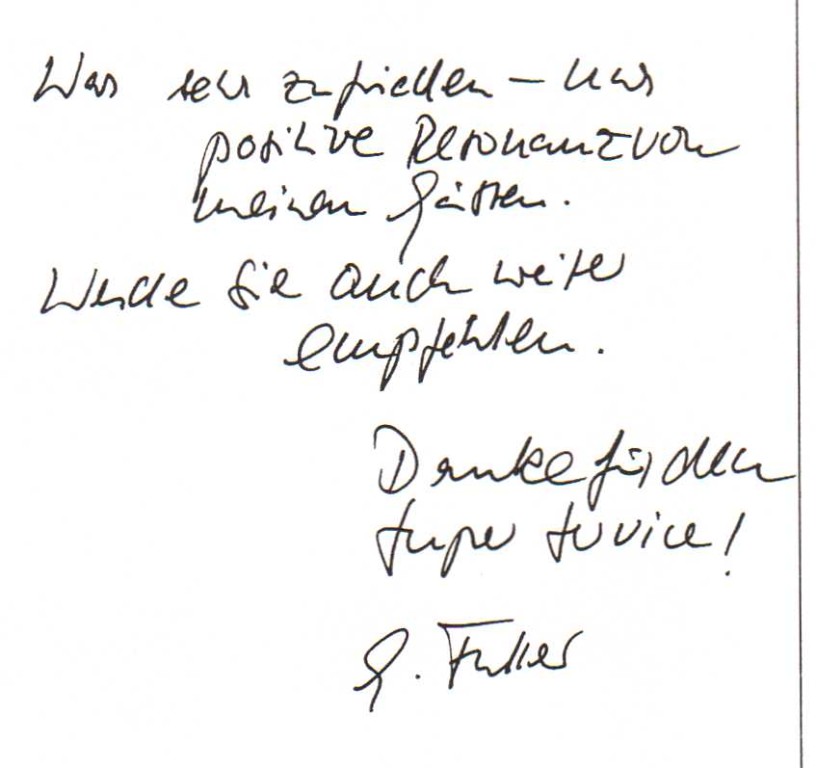 War sehr zufrieden – nur
positive Resonanz von
meinen Gästen.
Werde Sie auch weiter
empfehlen.
Danke für den
super Service!
G.